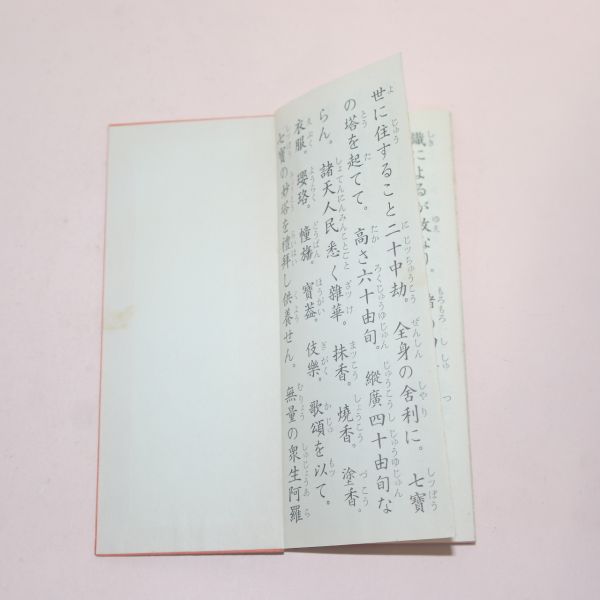 世に住すること二十中劫。全身の舍利に。七寶
の塔を起てて。高さ六十由旬。縱廣四十由旬な
らん。諸天人民悉く雜華。抹香。燒香。塗香。
衣服。瓔珞。幢旛。寶蓋。伎樂。歌頌を以て。
七寶の妙塔を禮拜し供養せん。無量の衆生阿羅